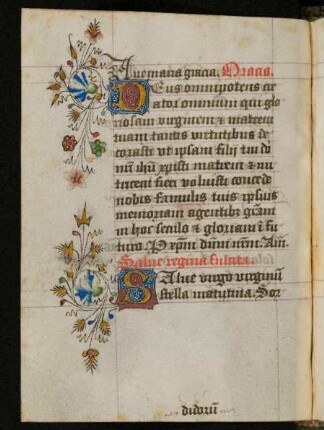 Aue maria gracia. Oracio.
Deus omnipotens cre
ator omnium qui glo
riosam virginem & matrem
mariam tantis virtutibus de
corasti vt ipsam filij tui do
mi ihu xpisti matrem & nu
tricem fieri voluisti concede
nobis famulis tuis ipsius
memoriam agentibus gram
in hoc seculo & gloriam i fu
turo. P xpm dnm nrm. Am
Salue regina saluta.
Salue virgo virginu
stella matutina. Sor
didoru